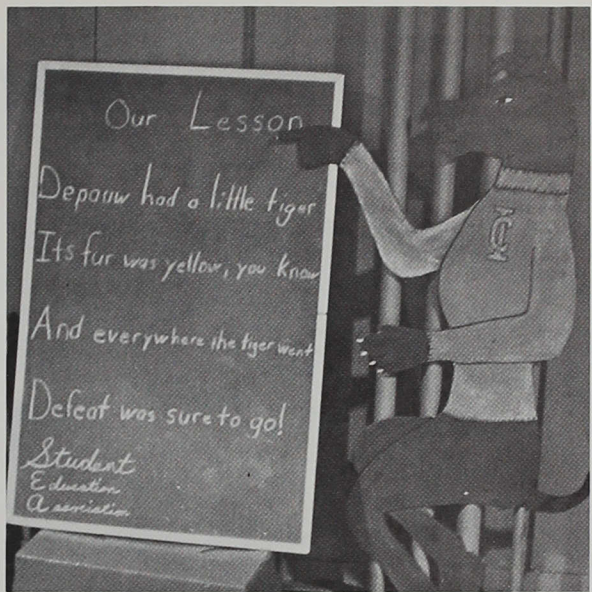 Our Lesson
Depauw had a little tiger
Its fur was yellow, you know
And everywhere the tiger went
Defeat was sure to go!
Student
Education
Association